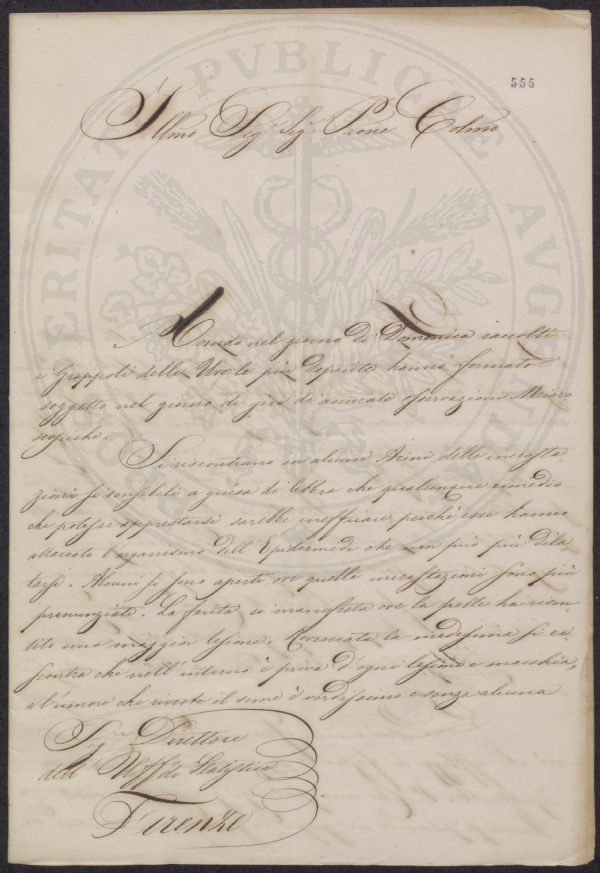 555
Illmo Sig.r Sig. Prone Colmo
Avendo nel giorno di Domenica raccolti
i Grappoli delle Uve le più deperite hanno formato
soggetto nel giorno di jeri di accurate osservazioni Micro
scopiche.
Si riscontrano in alcuni Acini delle incrosta
zioni sì sensibili a guisa di lebbra che qualunque rimedio
che potesse apprestarsi sarebbe inefficace, perché esse hanno
attaccato l'organismo dell'Epidermide che non può più dila-
tarsi. Alcuni si sono aperti ove quelle incrostazioni sono più
pronunziate. La ferita si manifesta ove la pelle ha risen-
tito una maggior lesione. Rovesciata la medesima si ri-
scontra che nell'interno è priva d'ogni lesione e macchia,
e l'umore che riveste il seme è verdissimo e senza alcuna
Sig.re Direttore
dell'Uff.o di Statistica
Firenze
VERITAR PVBLICAE AVG